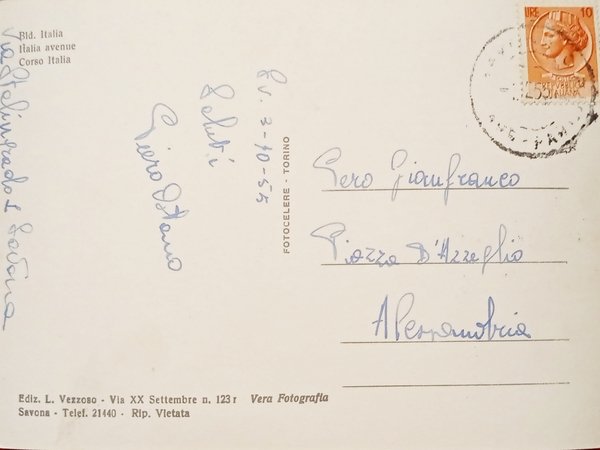 Bld. Italia
Italia avenue
Corso Italia
Via Stalingrado
Savona
Sv. 3-10-55
Saluti
Piero
FOTOCELERE - TORINO
LIRE 10
Gianfranco
Piazza D'Azzeglio
Alessandria
Ediz. L. Vezzoso - Via XX Settembre n. 123 r Vera Fotografia
Savona - Telef. 21440 - Rip. Vietata